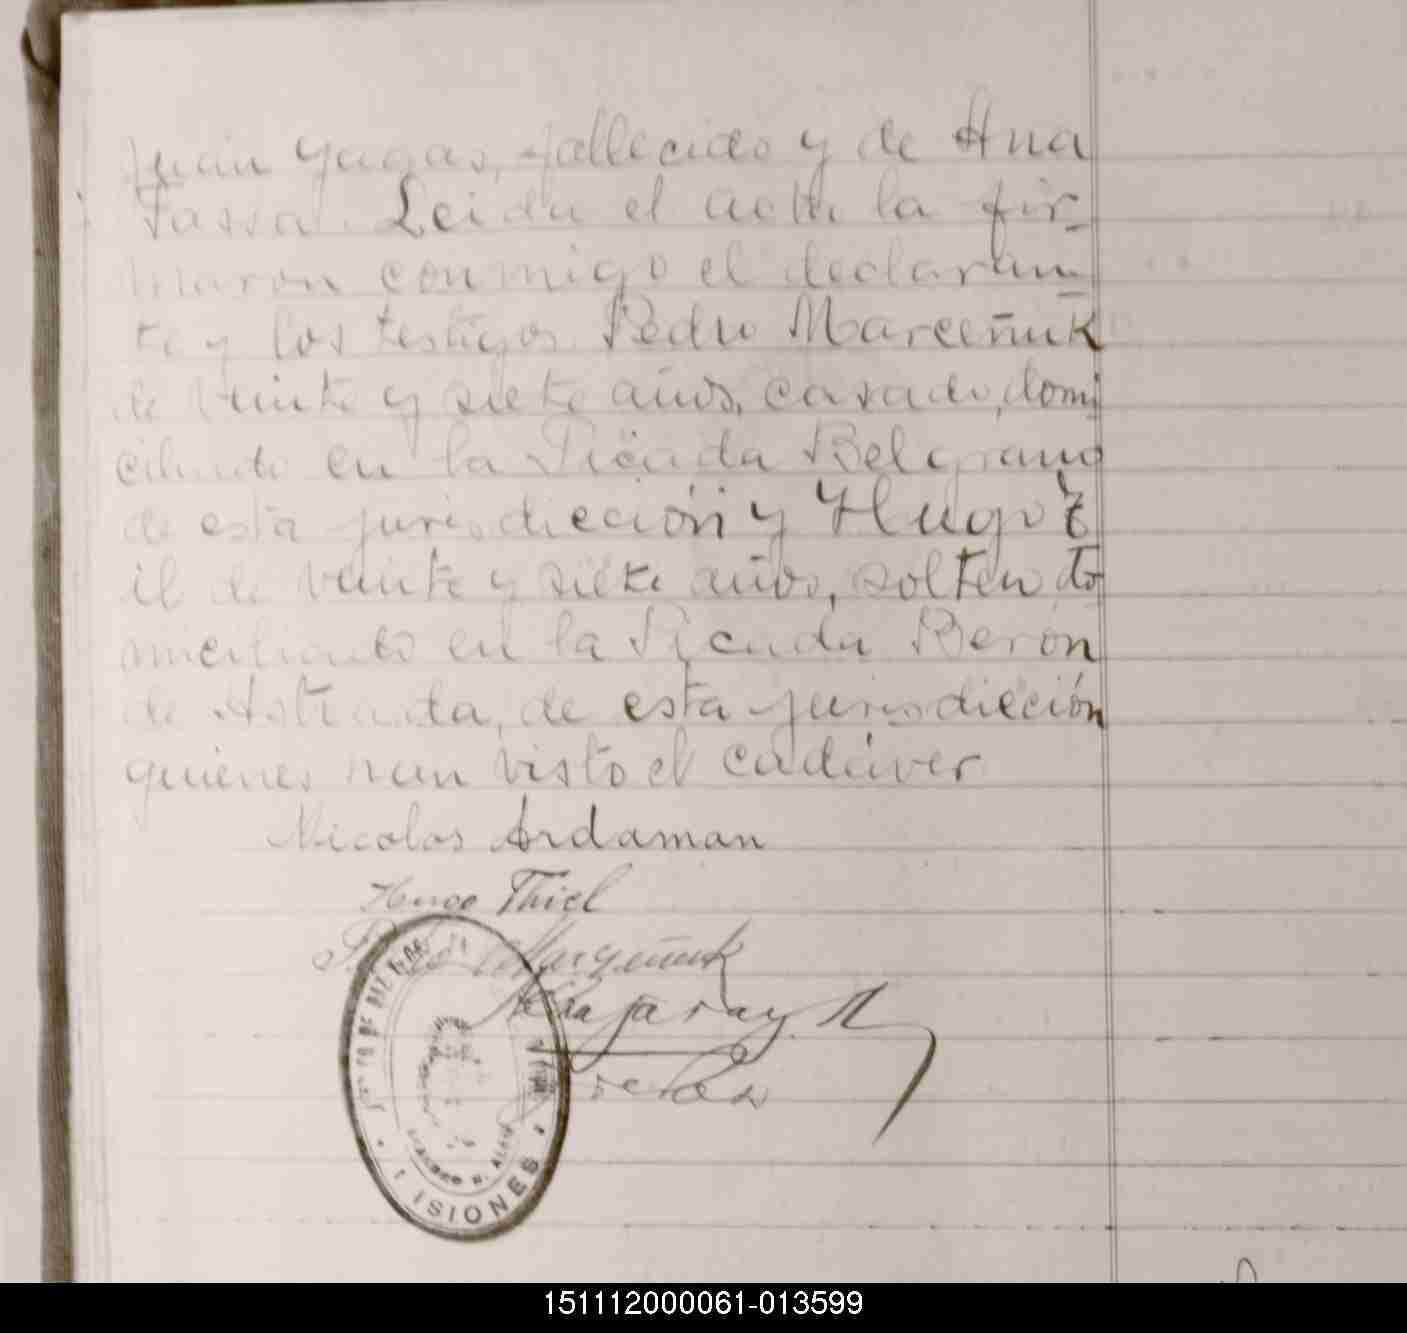 Juan Yagas, fallecido y de Ana
Tassa. Leida el acta la fir-
maron conmigo el declaran-
te y los testigos Pedro Marceñuk
de veinte y siete años, casado, domi
ciliado en la Picada Belgrano
de esta jurisdicción y Hugo T
il de veinte y siete años, soltero do
miciliado en la Picada Beron
de Astrada, de esta jurisdicción
quienes han visto el cadáver
Nicolas Ardaman
Hugo Thiel
Marzeniuk
ISIONES
151112000061-013599